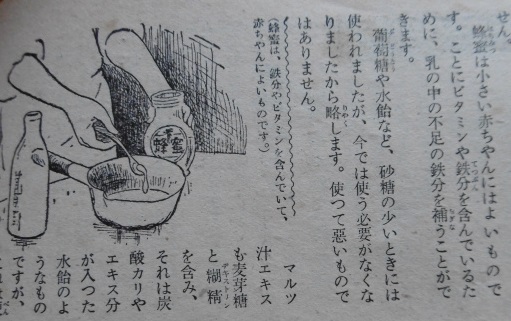 せん。
蜂蜜は小さい赤ちやんにはよいもので
す。ことにビタミンや鉄分を含んでいるた
めに、乳の中の不足の鉄分を補うことがで
きます。
葡萄糖や水飴など、砂糖の少いときには
使われましたが、今では使う必要がなくな
りましたから略します。使つて悪いもので
はありません。
(蜂蜜は、鉄分やビタミンを含んでいて、
赤ちやんによいものです。)
蜂蜜
マルツ
汁エキス
も麦芽糖
と糊精
を含み、
それは炭
酸カリや
エキス分
が入つた
水飴のよ
うなもの
ですが、